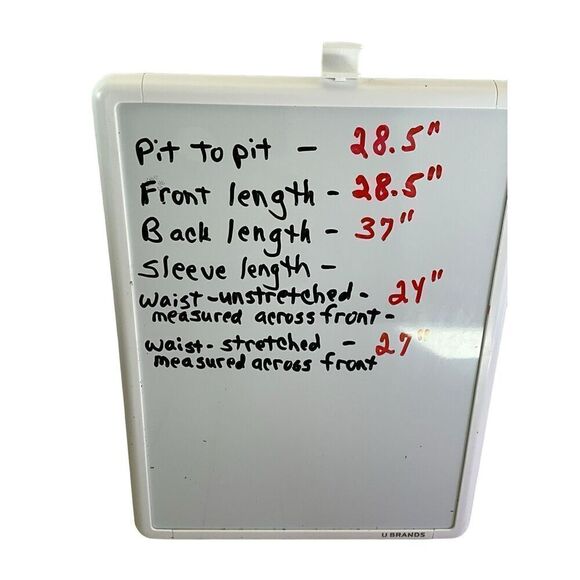 Pit to pit - 28.5"
Front length - 28.5"
Back length - 37"
Sleeve length -
waist-unstretched - 24"
measured across front -
waist-stretched - 27"
measured across front
U BRANDS